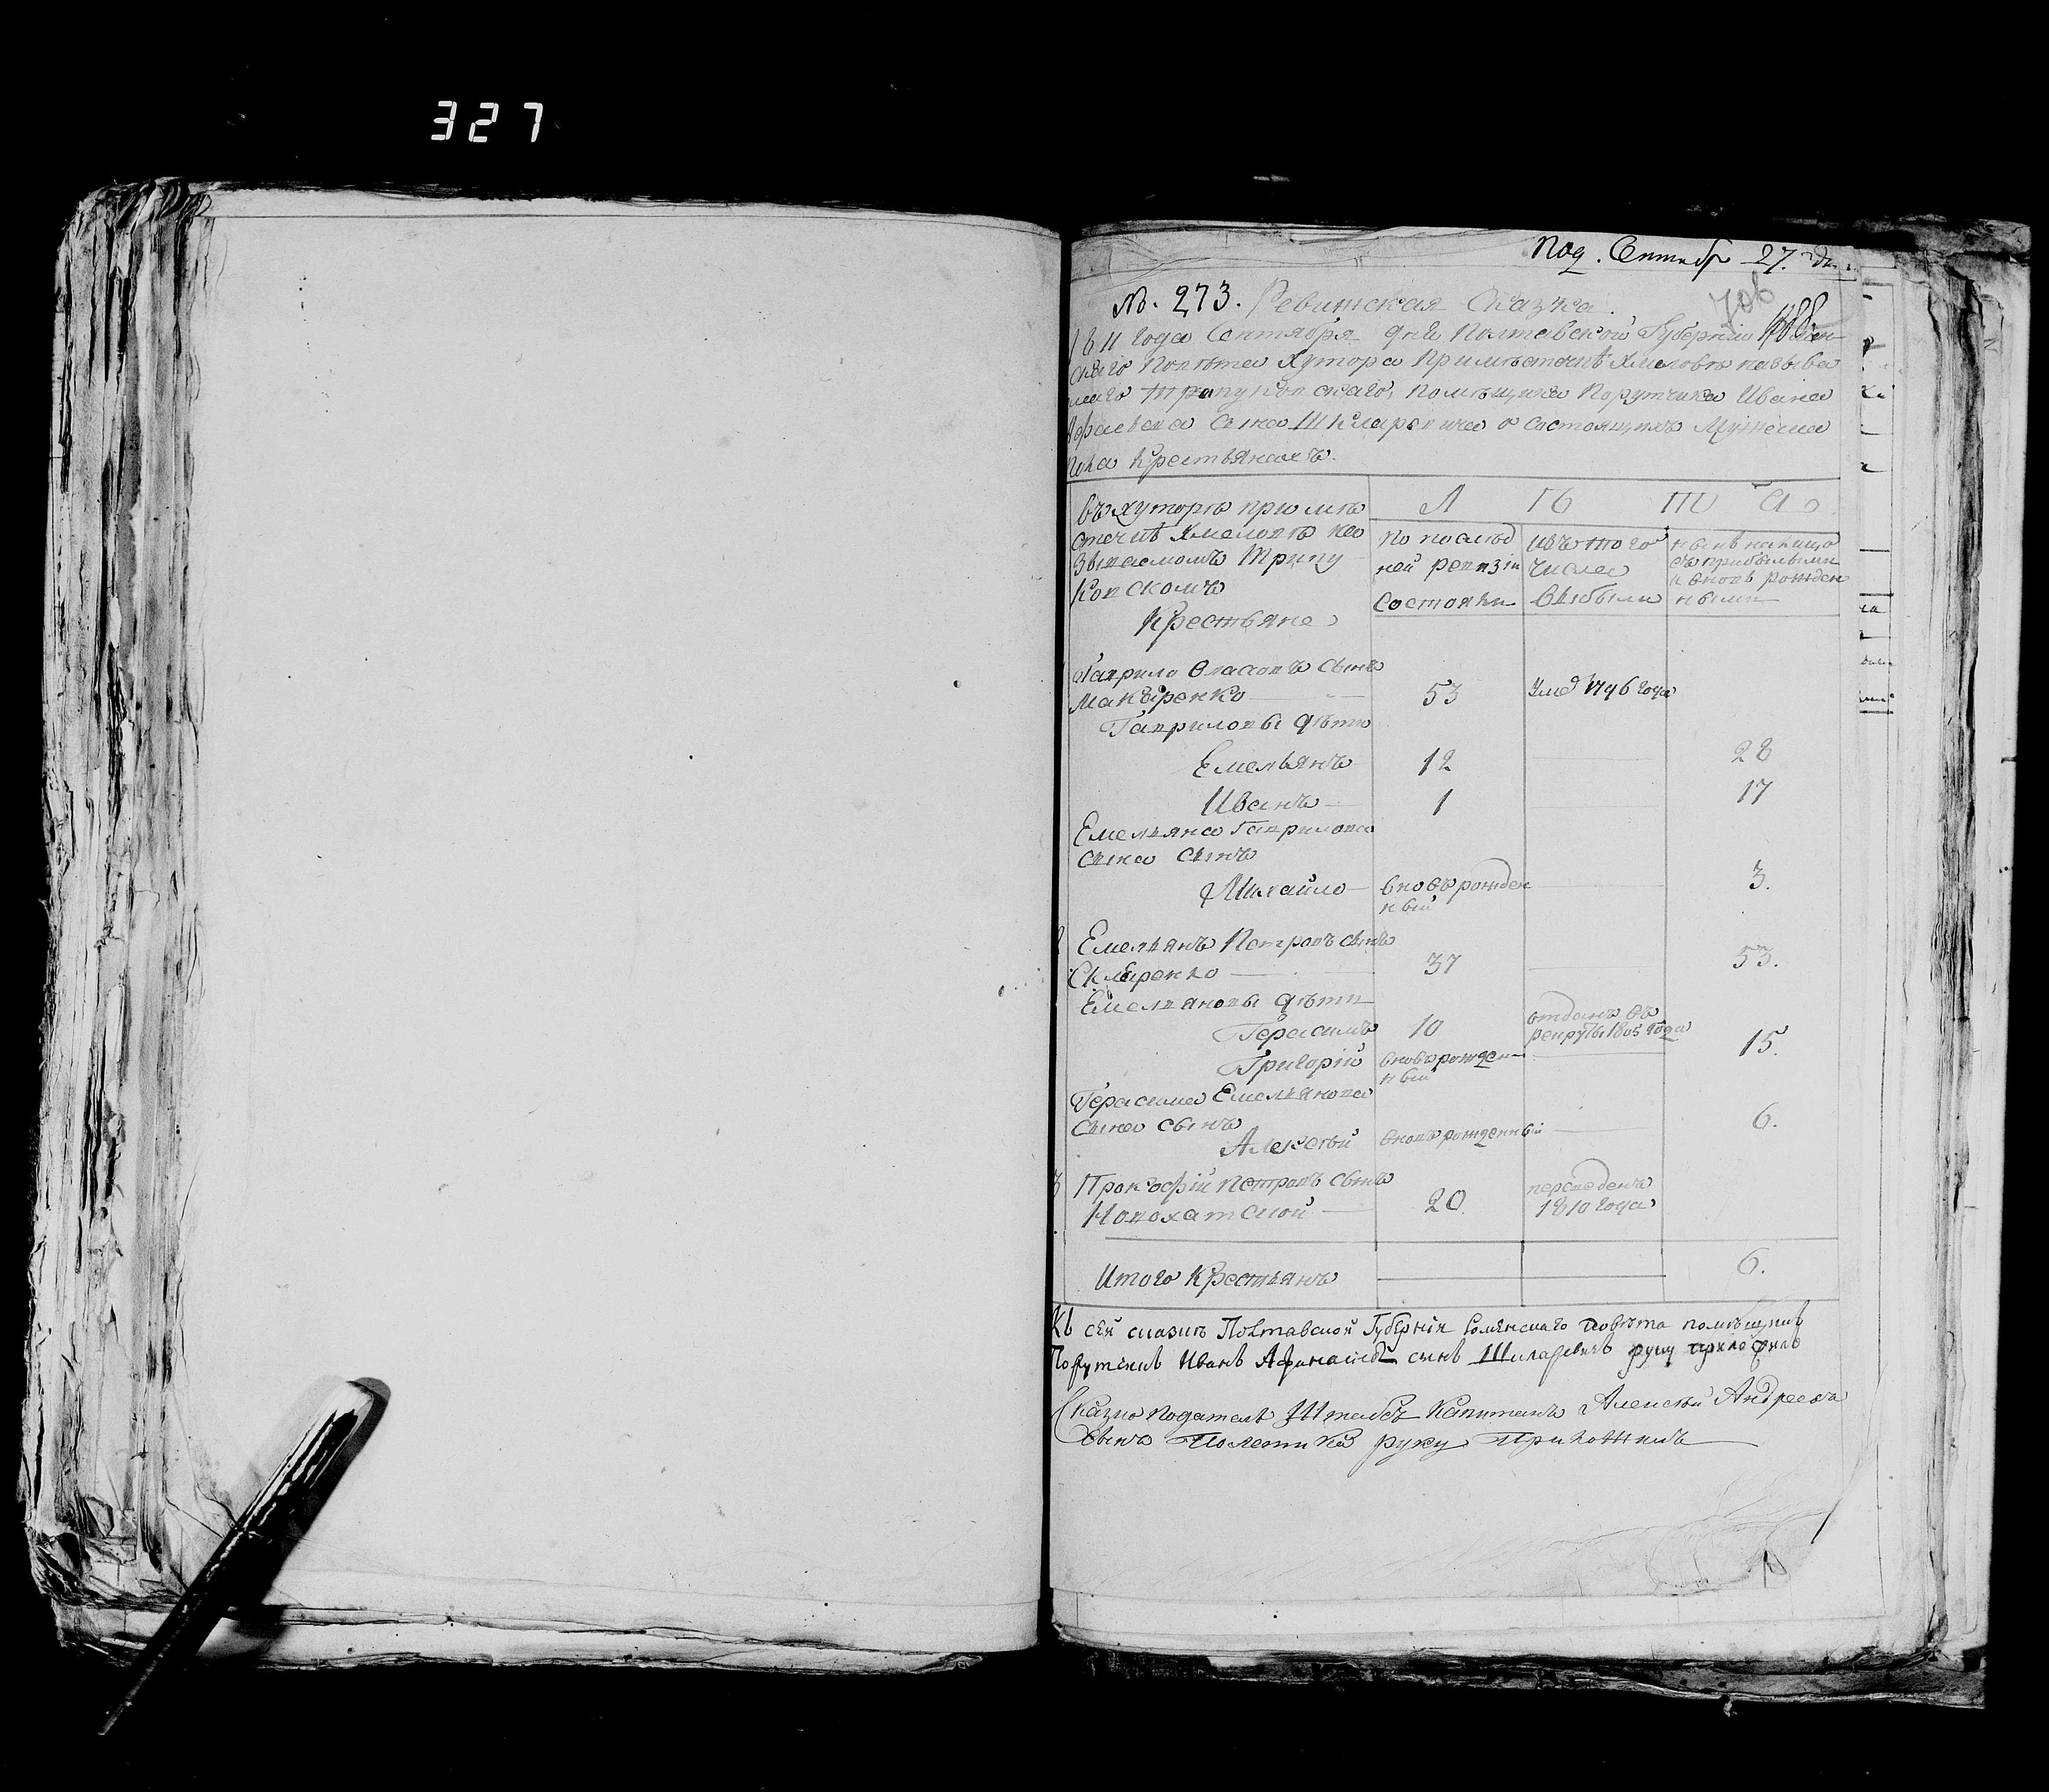 327
Под. Сентябр 27. дн.
№. 273. Ревижская Сказка.
706
1811 года Сентября дня Полтавской Губерніи
скаго Повѣта Хутора при мѣстечкѣ Хмеловѣ называ
маго помѣщика Порутчика Ивана
сына Шкларевича о состоящихъ Мужеска
пола крестьянахъ.
въ хуторѣ при мѣ
стечкѣ Хмеловѣ на
зываемомъ Трипу
ковскомъ
Крестьяне
Л Ѣ Т А
по послѣд
ней ревизіи
состояли
изъ того
числа
выбыли
нынѣ налицо
съ прибылыми
и вновь рожден
ными
Гаврило Власовъ сынъ
Макаренко 53 Умер 1796 года
Гавриловы дѣти
Емельянъ 12 28
Иванъ 1 17
Емельяна Гаврилова
сына сынъ
Михайло вновь рожден
ный 3.
2 Емельянъ Петровъ сынъ
Скляренко 37 53.
Емельяновы дѣти
Герасимъ 10 отданъ въ
рекруты 1805 года
Григорій вновь рожден
ный 15.
Герасима Емельянова
сына сынъ
Алексѣй вновь рожденный 6.
3 Прокофій Петровъ сынъ
Новохатской 20 переведенъ
1810 года
Итого крестьянъ 6.
Къ сей сказкѣ Полтавской Губерніи Роменскаго повѣта помѣщикъ
Порутчикъ Иванъ сынъ Шкларевичъ руку приложилъ
Сказко податель Штабсъ Капитанъ Алексѣй Андреева
Сынъ Полетика руку Приложилъ